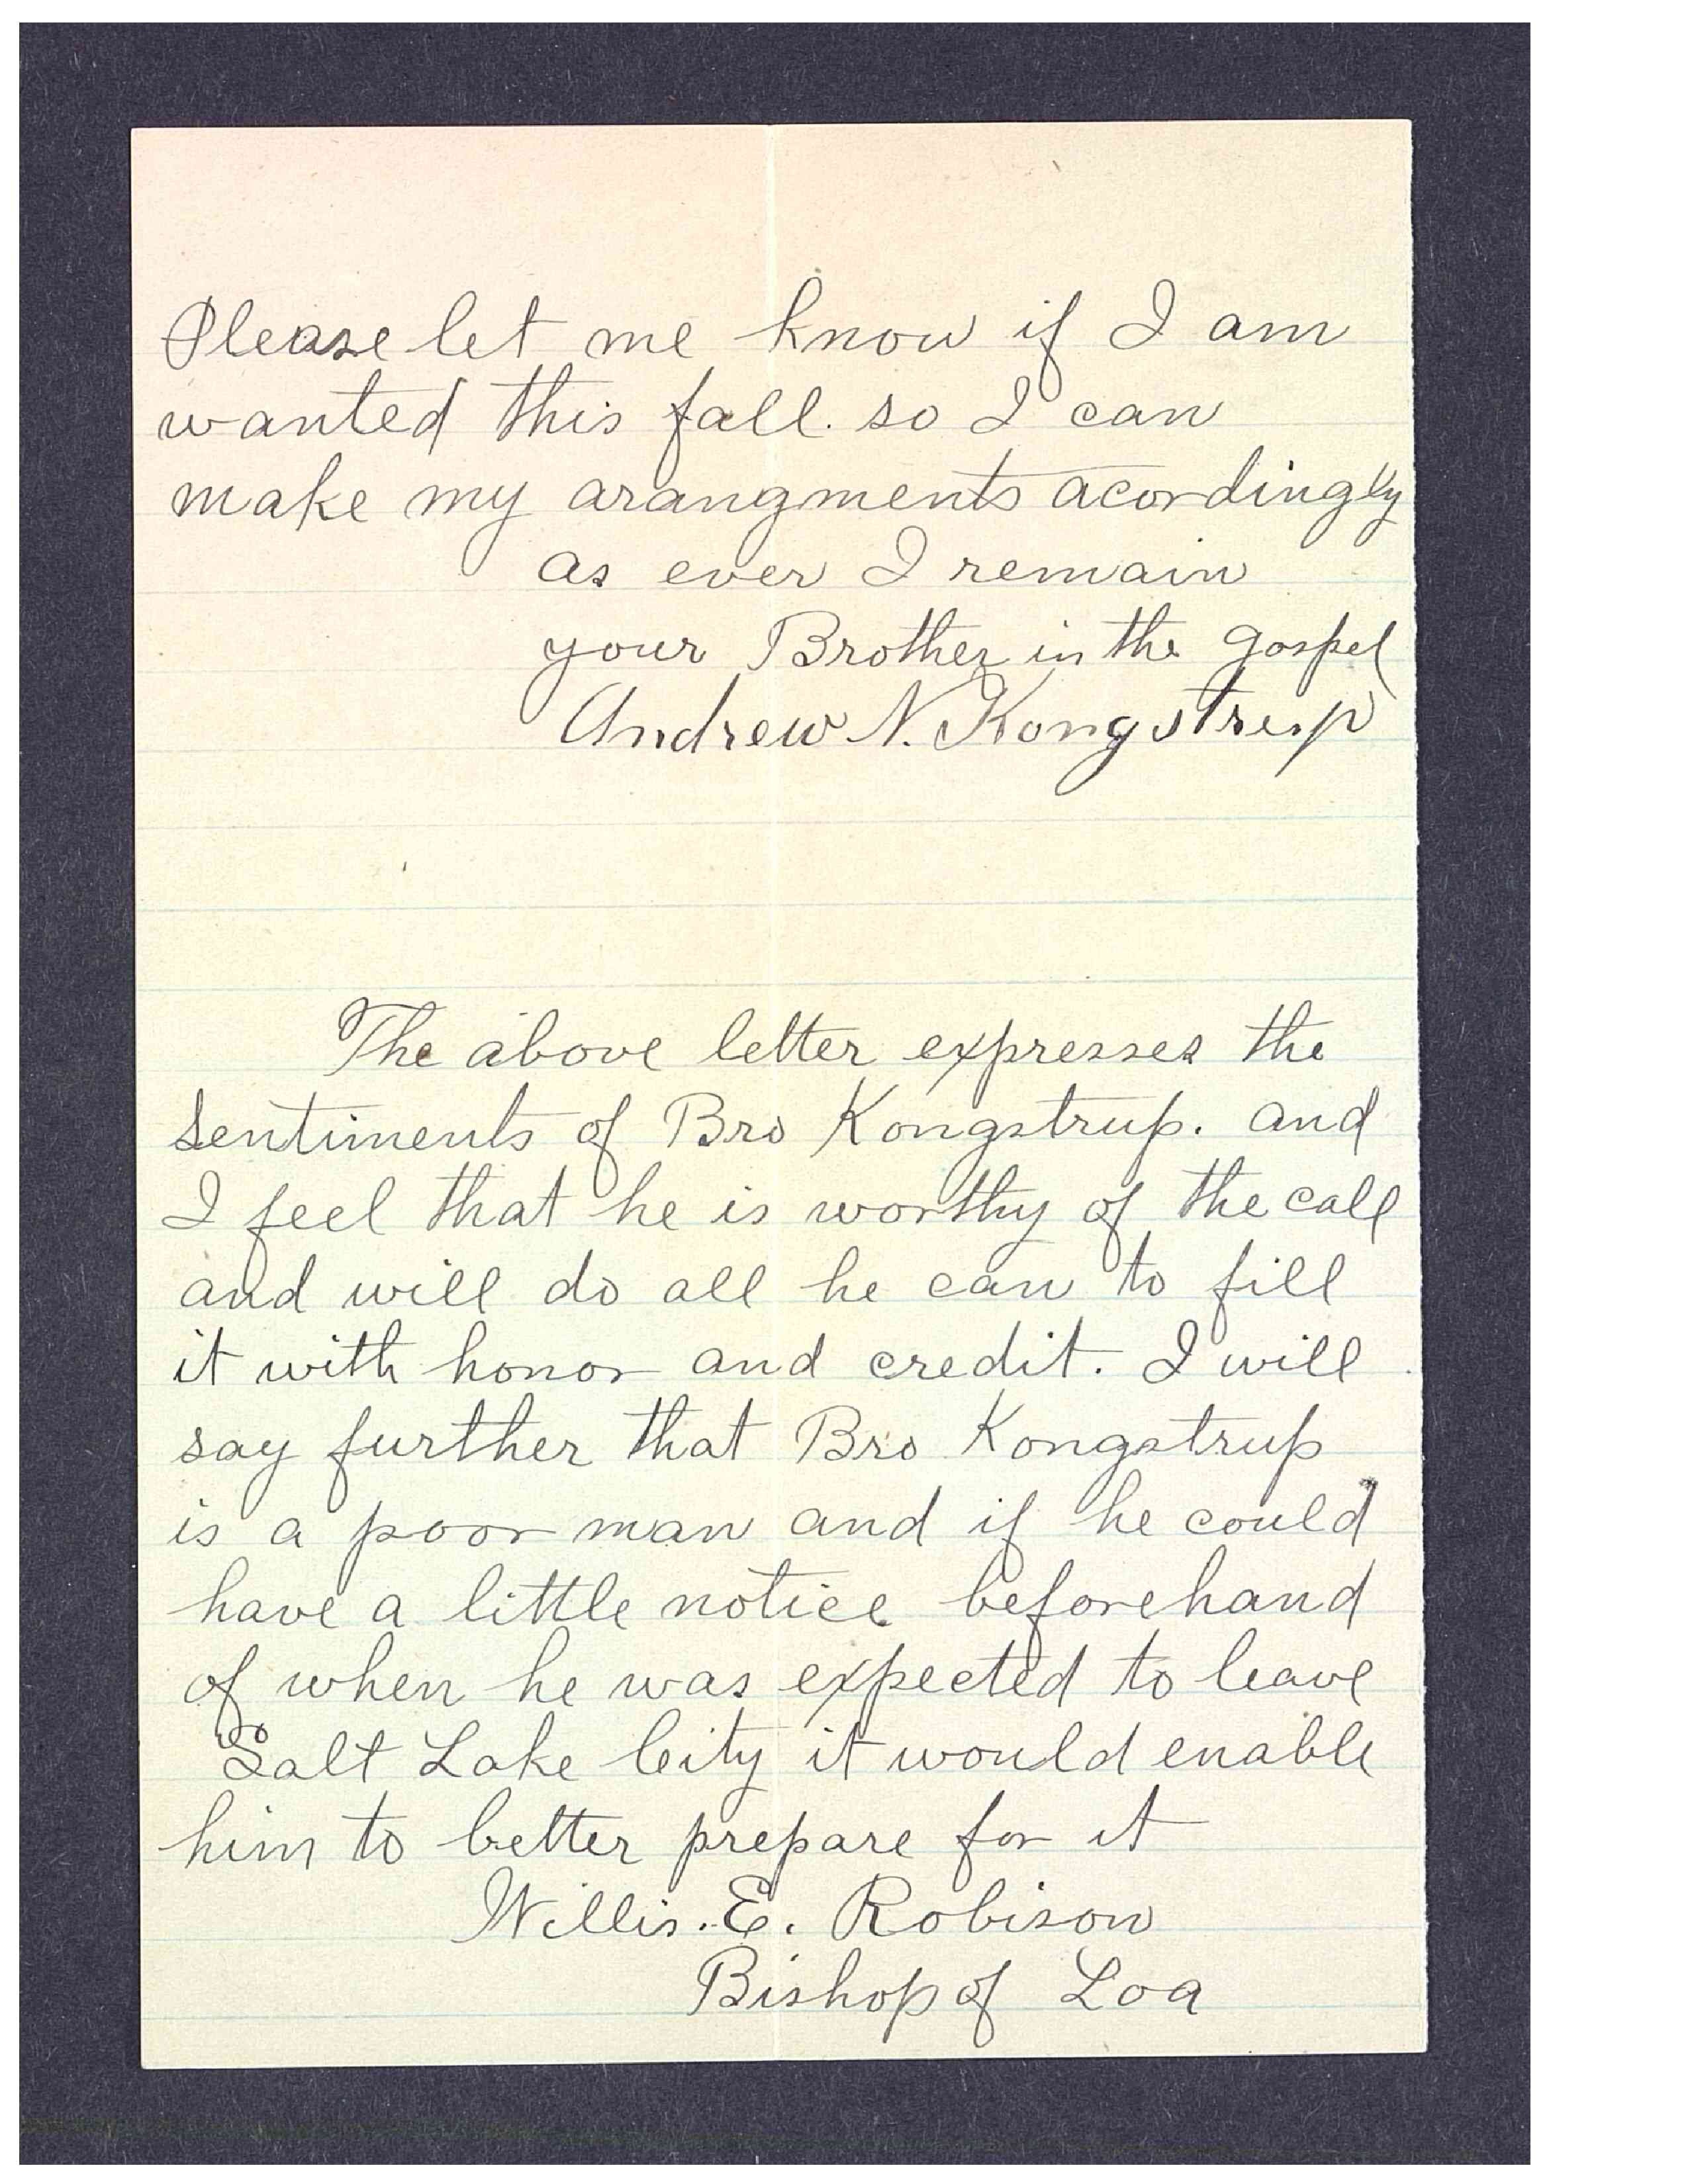 Please let me know if I am
wanted this fall. so I can
make my arangments acordingly
as ever I remain
your Brother in the gospel
Andrew N. Kongstrup
The above letter expresses the
Sentiments of Bro Kongstrup. and
I feel that he is worthy of the call
and will do all he can to fill
it with honor and credit. I will
say further that Bro Kongstrup
is a poor man and if he could
have a little notice beforehand
of when he was expected to leave
Salt Lake City it would enable
him to better prepare for it
Willis. E. Robison
Bishop of Loa